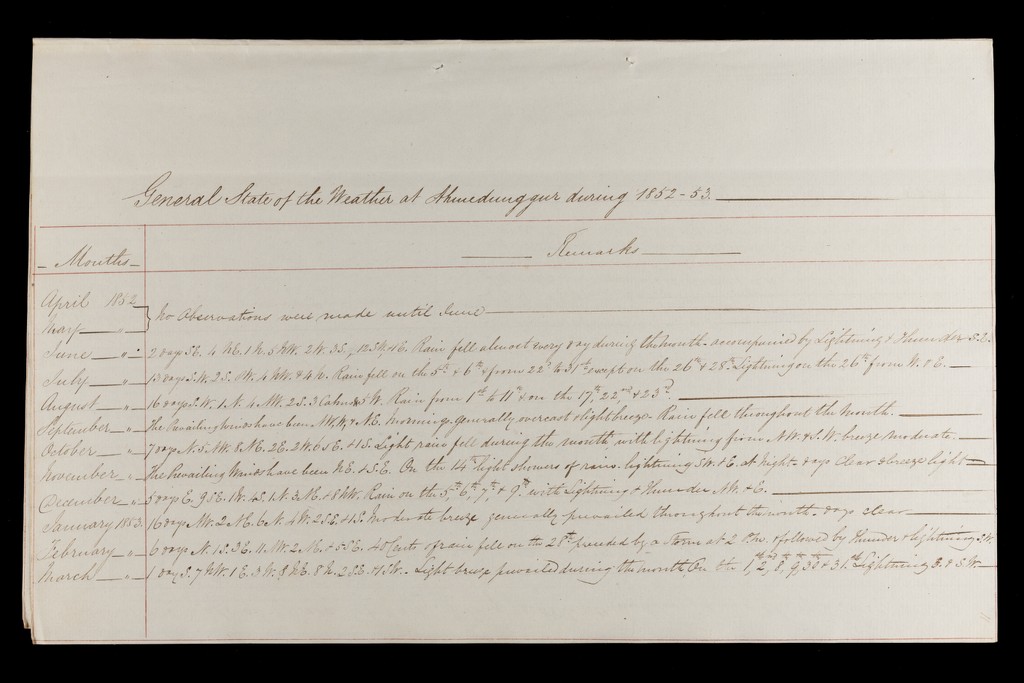 General State of the Weather at Ahmedunggur during 1852-53.
Months Remarks
April 1852
May " } No Observations were made until June
June " 2 days S.E. 4 N.E. 1 N. 5 N.W. 2 W. 3 S. Rain fell almost every day during the month accompanied by Lightning & Thunder S.E.
July " 13 days S.W. 2 S. 4 N.W. & 4 N. Rain fell on the 5th & 6th & from 22d to 31st except on the 26th & 28th Lightning on the 26th from N. & E.
August " 16 days S.W. 1 N. 4 N.W. 2 S. 3 Calm & 5 W. Rain from 1st to 11th & on the 17th, 22nd, & 23d.
September " The Prevailing winds have been N.W, W, & N.E. mornings generally overcast & light breeze. Rain fell throughout the month.
October " 7 days N. 5 N.W. 8 N.E. 2 E. 2 W. 6 S.E. & 1 S. Light rain fell during the month with lightning from N.W. & S.W. breeze moderate.
November " The Prevailing Winds have been N.E. & S.E. On the 14th light showers of rain. lightning S.W. & E. at Night. days clear & breeze light
December " 5 days E. 9 S.E. 1 W. 4 S. 1 N. 3 N.E. & 8 N.W. Rain on the 5th, 6th, 7th & 9th with Lightning & Thunder N.W. & E.
January 1853. 16 days N.W. 2 N.E. 6 N. 4 W. 2 S.E. & 1 S. Moderate breeze generally prevailed throughout the month. days clear
February " 6 days N. 1 S. 3 E. 11 N.W. 2 N.E. & 5 S.E. 40 Cents of rain fell on the 28th preceded by a Storm at 2 P.M. & followed by Thunder & lightning S.W.
March " 1 day S. 7 N.W. 1 E. 3 W. 8 N.E. 8 N. 2 S.E. & 1 S.W. Light breeze prevailed during the month. On the 1st, 2, 8, 9, 30 & 31st Lightning S. & S.W.